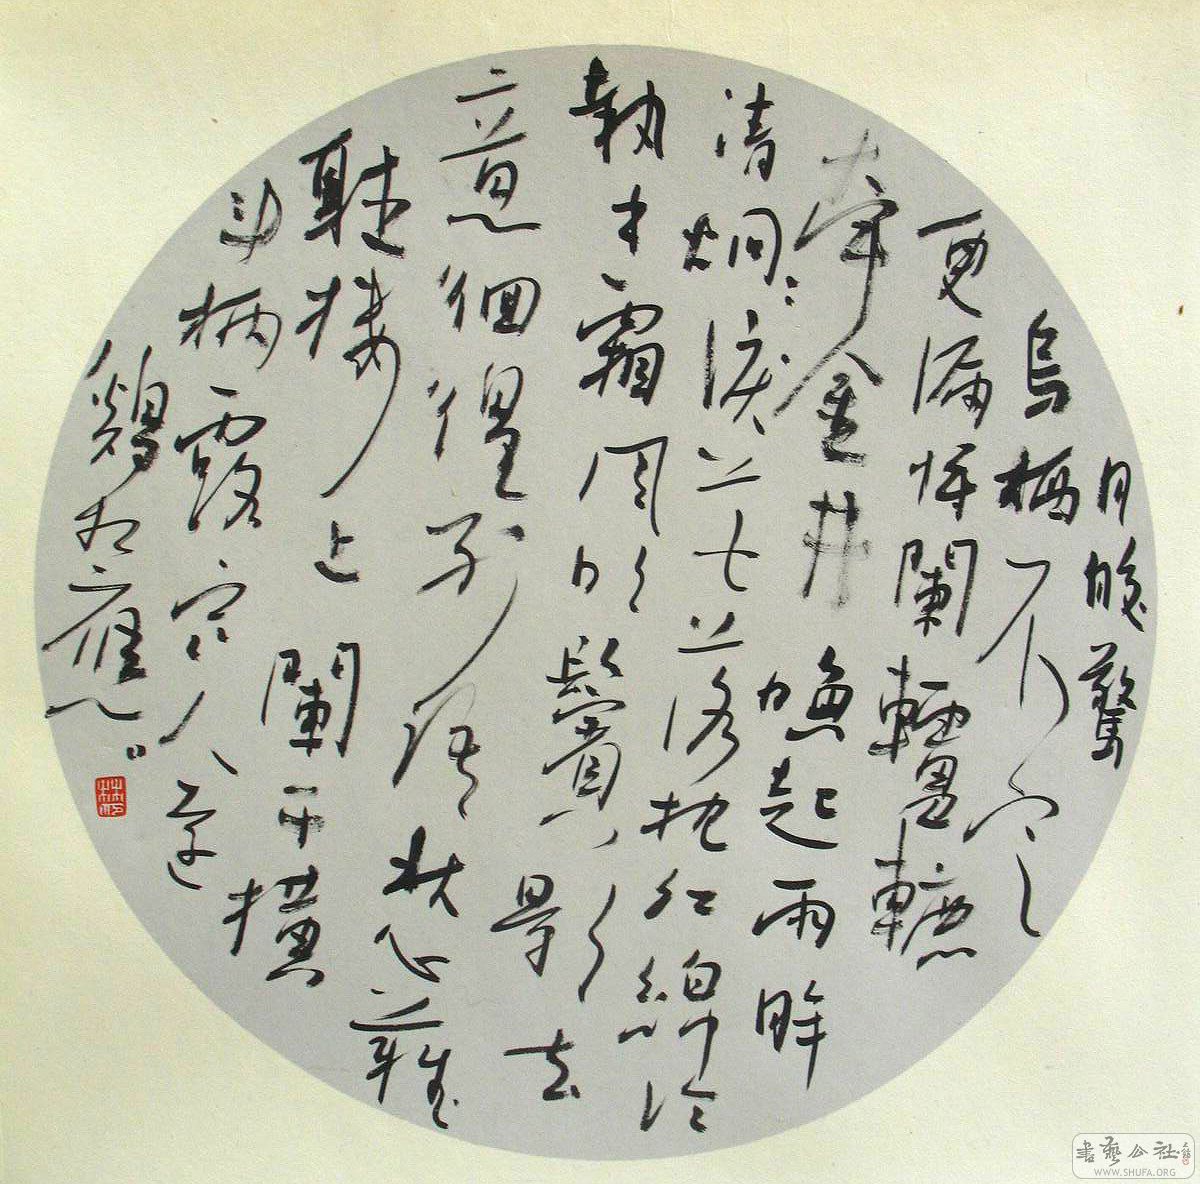 月皎驚
烏栖不定
更漏將闌轤轆
牽金井喚起兩眸
清炯々淚花落枕紅綿冷
執手霜風吹鬢影去
意徊徨別語愁難
聽樓上闌干橫
斗柄露寒人遠
鷄相應
書藝公社
WWW.SHUFA.ORG